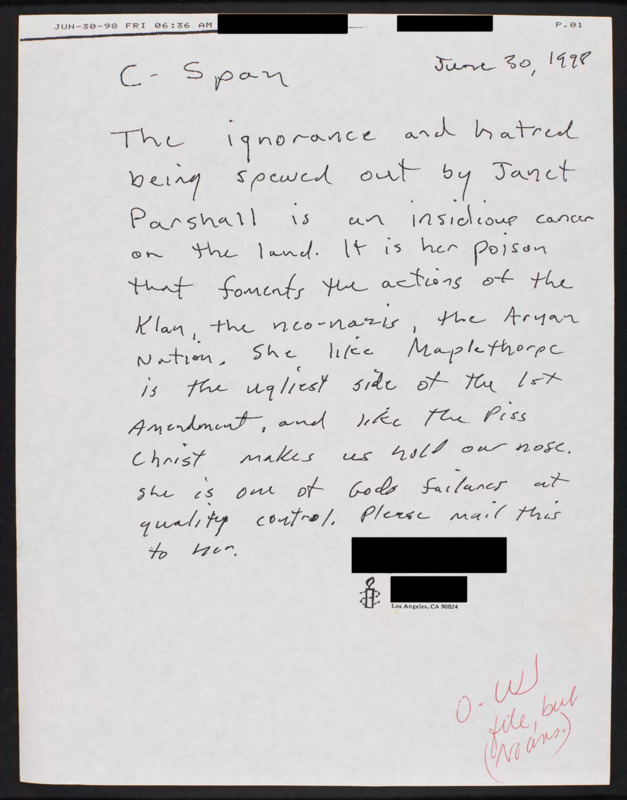 JUN-30-98 FRI 06:36 AM
P.01
June 30, 1998
C-Span
The ignorance and hatred
being spewed out by Janet
Parshall is an insidious cancer
on the land. It is her poison
that foments the actions of the
Klan, the neo-nazis, the Aryan
Nation. She like Maplethorpe
is the ugliest side of the 1st
Amendment, and like the Piss
Christ makes us hold our nose.
she is one of Gods failures at
quality control. Please mail this
to her.
Los Angeles, CA 90024
O-W
file, but
(No ans.)